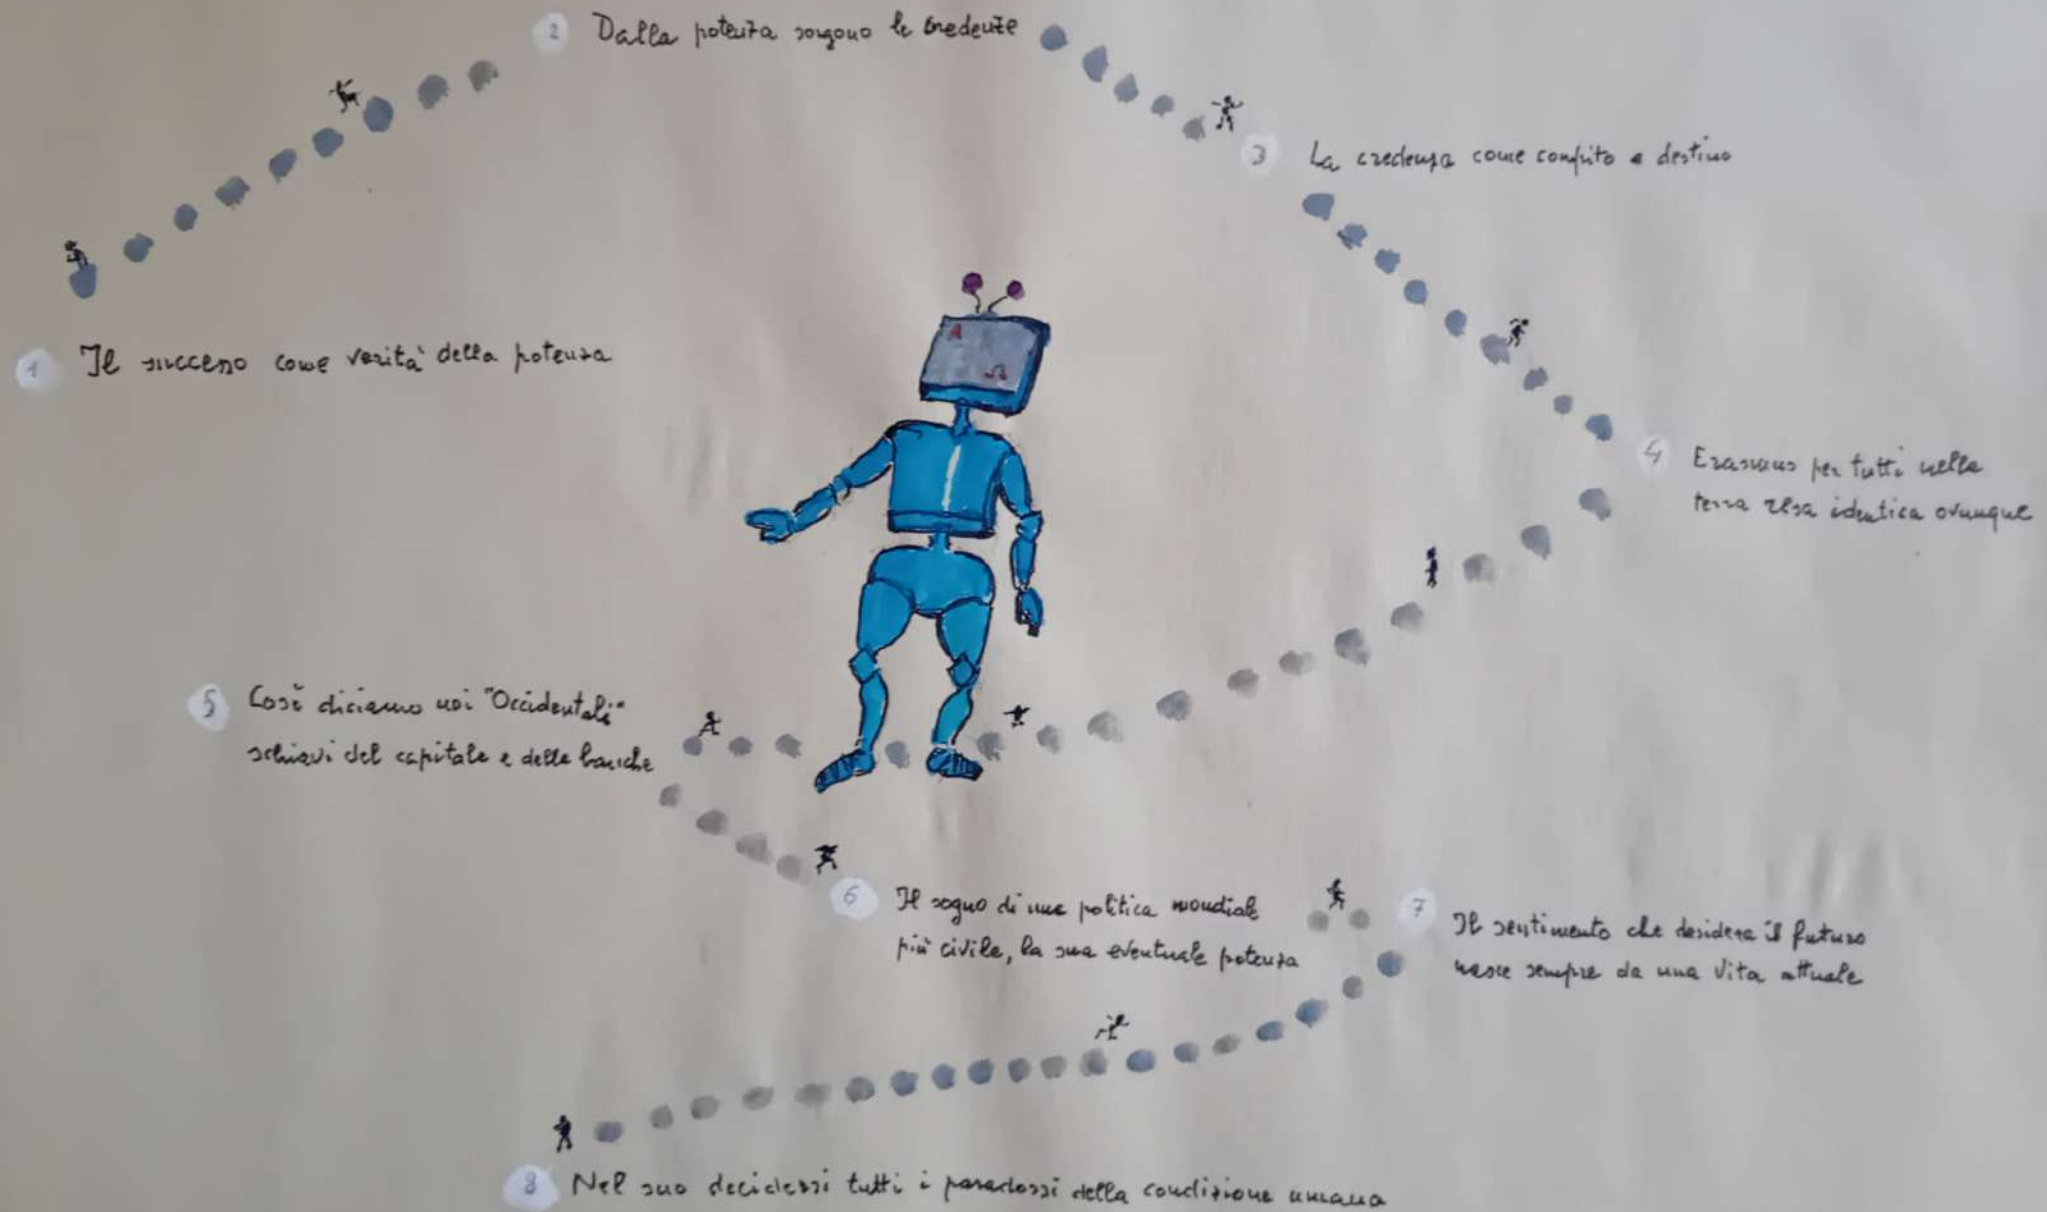 1 Il successo come verità della potenza
2 Dalla potenza sorgono le credenze
3 La credenza come compito e destino
4 Erasmus per tutti nella
terra resa identica ovunque
5 Così diciamo noi "Occidentali"
schiavi del capitale e delle banche
6 Il sogno di una politica mondiale
più civile, la sua eventuale potenza
7 Il sentimento che desidera il futuro
nasce sempre da una vita attuale
8 Nel suo decidersi tutti i paradossi della condizione umana
A
Ω